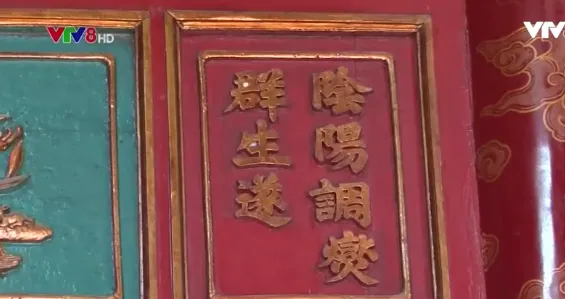 VTV8 HD
VTV
陰陽調燮
群生遂